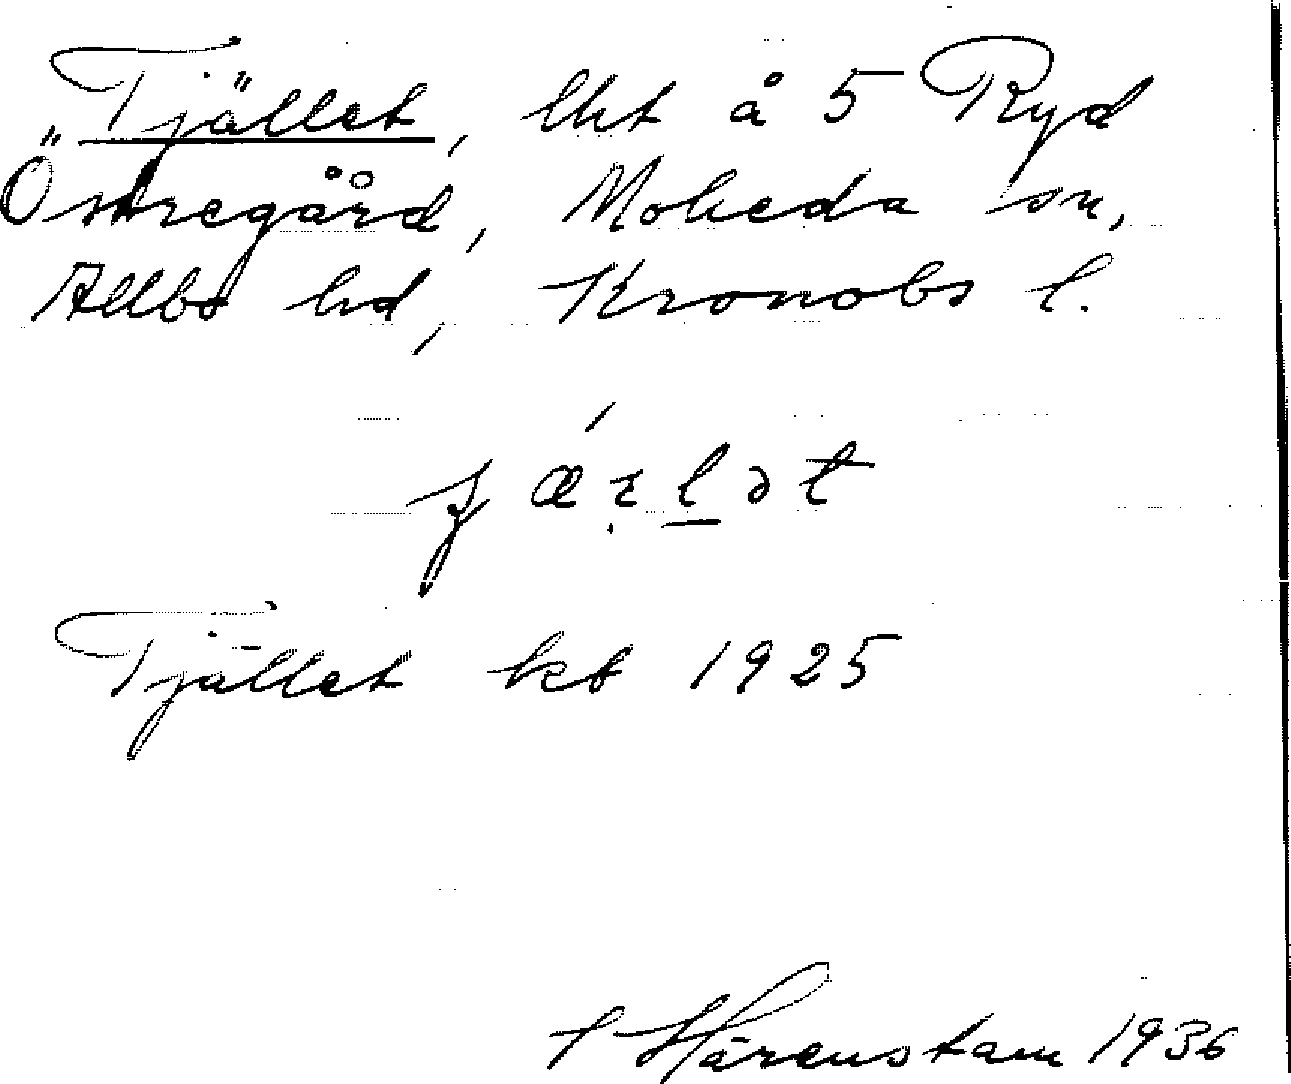 Tjället, lht å 5 Ryd
Östregård, Moheda sn,
Allbo hd, Kronobs l.
Tjället kt 1925
Härenstam 1936